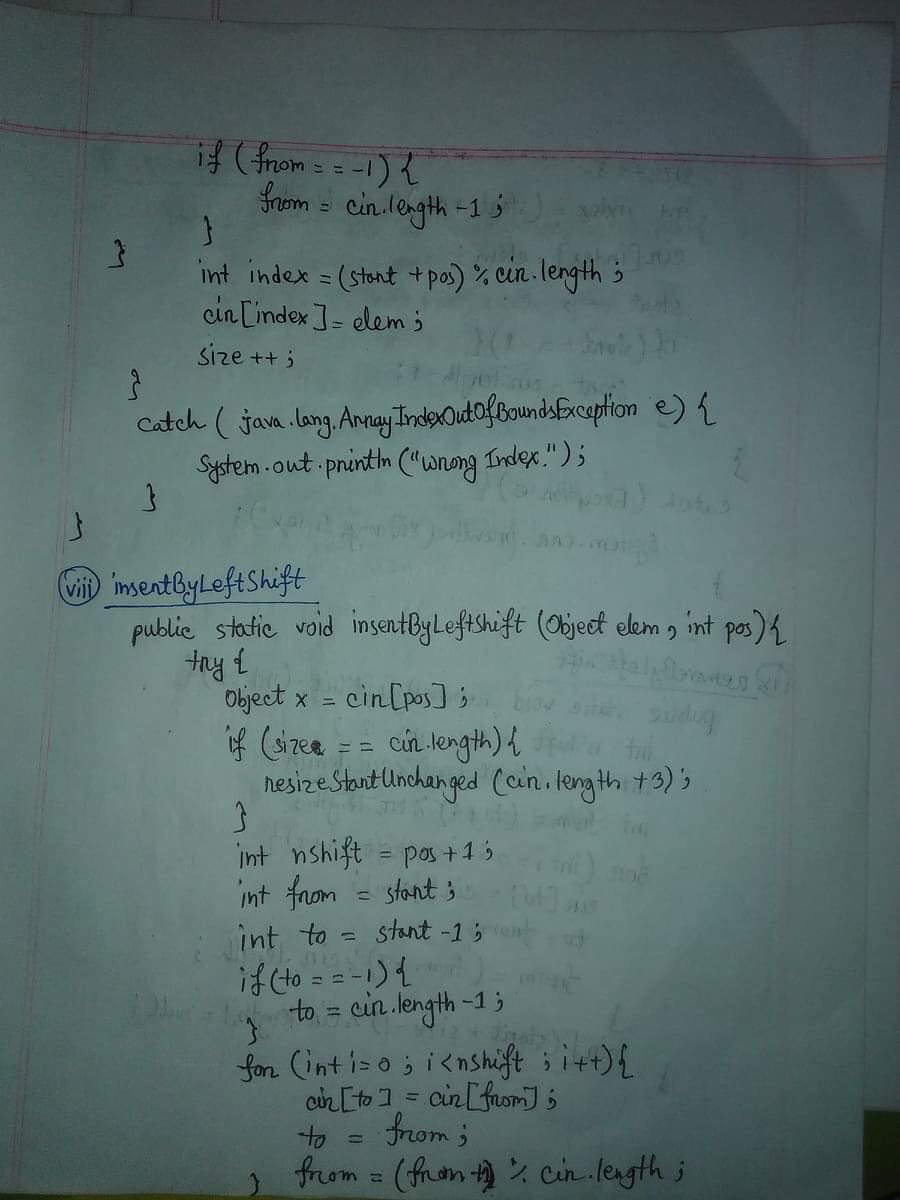 if (from == -1) {
from = cir.length -1 ;
}
}
int index = (start + pos) % cir.length ;
cir[index] = elem ;
size ++ ;
}
catch ( java.lang.ArrayIndexOutOfBoundsException e) {
System.out.println ("Wrong Index.") ;
}
}
(viii) insertByLeftShift
public static void insertByLeftShift (Object elem , int pos) {
try {
Object x = cir[pos] ;
if (size == cir.length) {
resizeStartUnchanged (cir.length +3) ;
}
int nshift = pos+1 ;
int from = start ;
int to = start -1 ;
if (to == -1) {
to = cir.length -1 ;
}
for (int i=0 ; i<nshift ; i++) {
cir[to] = cir[from] ;
to = from ;
} from = (from +1) % cir.length ;